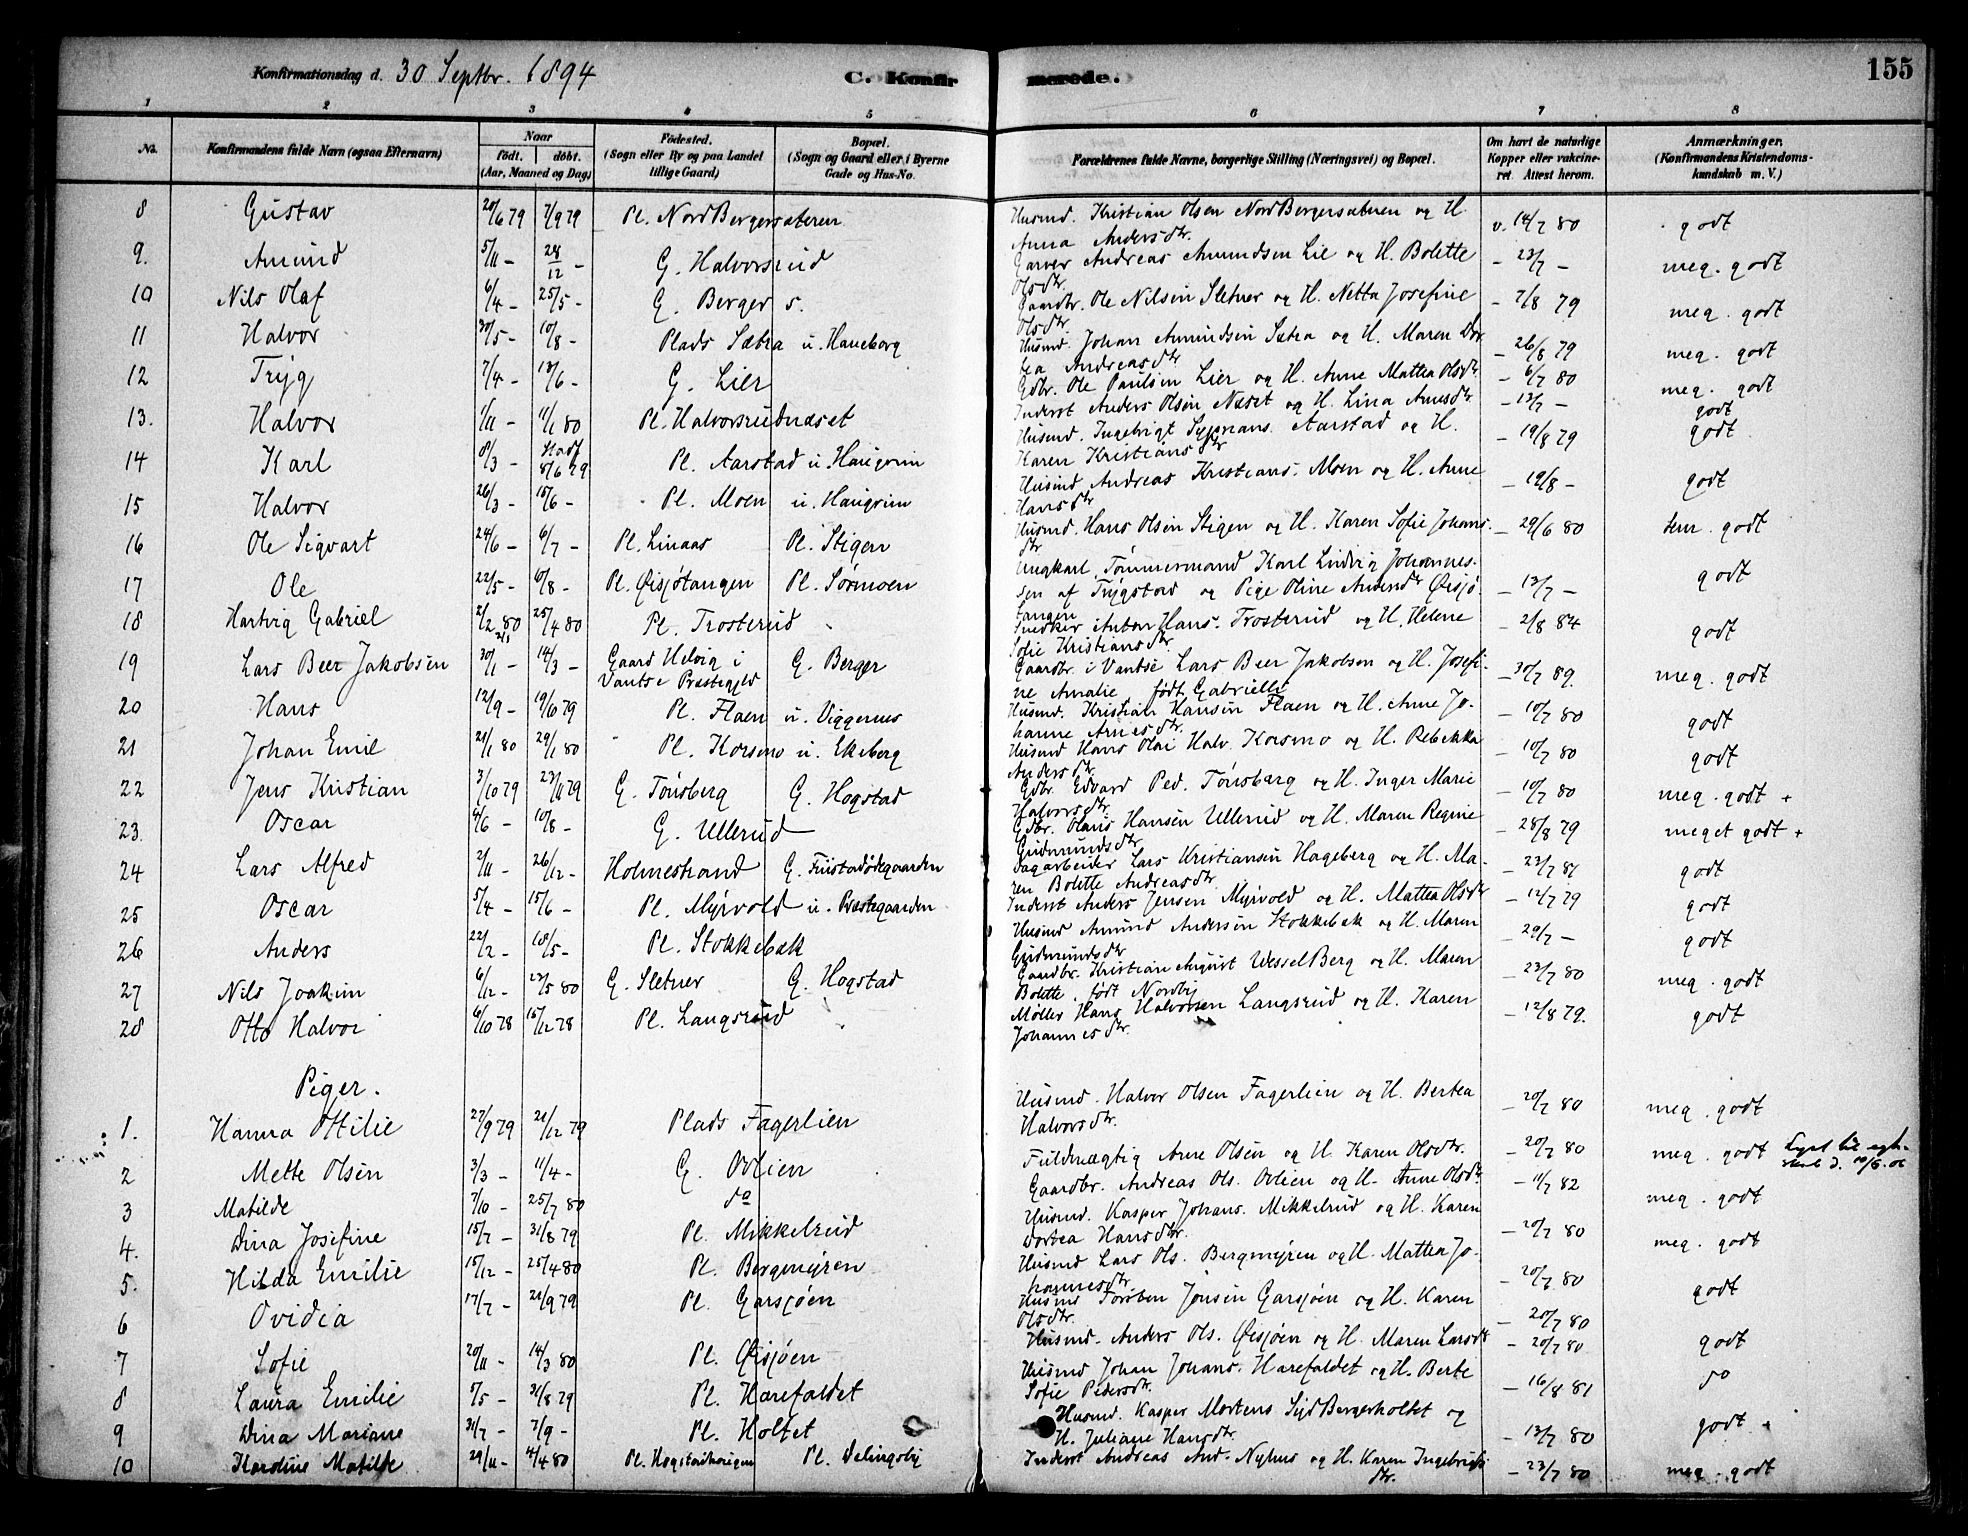 Konfirmationsdag d. 30 Septbr. 1894 C. Konfirmerede. 155
1 2 3 4 5 6 7 8
No. Konfirmandens fulde Navn (ogsaa Efternavn) Naar født. døbt. (Aar, Maaned og Dag) Fødested. (Sogn eller By og paa Landet tillige Gaard) Bopæl. (Sogn og Gaard eller i Byerne Gade og Hus-No. Forældrenes fulde Navne, borgerlige Stilling (Næringsvei) og Bopæl. Om havt de naturlige Kopper eller vakcineret. Attest herom. Anmærkninger. (Konfirmandens Kristendomskundskab m. V.)
8 Gustav 20/6 79 7/9 79 Pl. NordBergersæteren Husmd. Kristian Olsen NordBergersæteren og H. Anna Andersdtr. v. 14/7 80 godt
9. Amund 5/11 – 28/12 – G. Halvorsrud Garver Andreas Amundsen Lie og H. Bolette Olsdtr. – 23/7 – meg. godt
10 Nils Olaf 6/4 – 25/5 – G. Berger s. Gaardbr. Ole Nilsen Sletner og H. Netta Josefine Olsdtr. – 7/8 79 meg. godt
11 Halvor 30/5 – 10/8 – Plads Sætra u. Haneborg Husmd. Johan Amundsen Sætra og H. Maren Dortea Andreasdtr – 26/8 79 meg. godt
12 Tryg 7/4 – 13/6 – G. Lier Gdbr. Ole Paulsen Lier og H. Anne Mattea Olsdtr. – 6/7 80 meg. godt
13. Halvor 1/11 – 11/1 80 Pl. Halvorsrudnæset Inderst Anders Olsen Næset og H. Lina Arnesdtr – 13/7 – godt
14 Karl 8/3 – 8/6 79 Pl. Aarstad u. Haugrim Husmd. Ingebrigt Aarstad og H. Karen Kristiansdtr – 19/8 79 godt
15 Halvor 26/3 – 15/6 – Pl. Moen u. Haugrim Husmd Andreas Kristians. Moen og H. Anne Hansdtr – 19/8 – godt
16 Ole Sigvart 24/6 – 6/7 – Pl. Linaas Pl. Stigen Husmd. Hans Olsen Stigen og H. Karen Sofie Johansdtr – 29/6 80 godt
17 Ole 22/5 – 10/8 – Pl. Øisjøtangen Pl. Sørmoen Ungkarl Tømmermand Karl Ludvig Johannessen af Trygstad og Pige Oline Amundsdtr Øisjøtangen – 13/7 – godt
18 Hartvig Gabriel 2/2 80 25/4 80 Pl. Trosterud Snedker Anton Hans. Trosterud og H. Helene Sofie Kristiansdtr – 2/8 84 godt
19 Lars Beer Jakobsen 30/1 – 14/3 – Gaard Helvig i Vantse Præstegjeld G. Berger Gaardbr. i Vantse Lars Beer Jakobsen og H. Josefine Amalie, født Gabrielle – 30/7 89. meg. godt
20 Hans 12/9 – 19/10 79 Pl. Flaen u. Viggernes Husmd. Kristian Hansen Flaen og H. Anne Johanne Arnesdtr. – 10/7 80 godt
21 Johan Emil 21/1 80 29/1 80 Pl. Korsmo u. Ekeberg Husmd Hans Olai Halv. Korsmo og H. Rebekka Andersdtr – 10/7 80 godt
22 Jens Kristian 3/10 79 23/11 79 G. Tønsberg G. Hogstad Gdbr. Edvard Ped. Tønsberg og H. Inger Marie Halvorsdtr. – 10/7 80 meg. godt +
23. Oscar 4/6 – 10/8 – G. Ullerud Gdbr. Olaus Hansen Ullerud og H. Maren Regine Gudmundsdtr – 28/8 79 meget godt +
24 Lars Alfred 2/11 – 26/12 – Holmestrand G. Fuistadødegaarden Dagarbeider Lars Kristiansen Hageberg og H. Maren Bolette Andreasdtr – 23/7 81 godt
25 Oscar 5/4 – 15/6 – Pl. Myrvold u. Præstegaarden Inderst Anders Jensen Myrvold og H. Mattea Olsdtr – 12/7 79 godt
26 Anders 22/2 – 18/5 – Pl. Stokkebæk Husmd Amund Andersen Stokkebæk og H. Maren Gudmundsdtr – 29/7 – godt
27 Nils Joakim 6/12 – 23/5 80 G. Sletner G. Hogstad Gaardbr. Kristian August Wessel Berg og H. Maren Bolette, født Nordby – 23/7 80 meg. godt
28 Otto Halvor 6/10 78 15/12 78 Pl. Langsrud Møller Hans Halvorsen Langsrud og H. Karen Johannesdtr. – 12/8 79. godt
Piger.
1. Hanna Ottilie 27/9 79 21/12 79 Plads Fagerlien Husmd. Halvor Olsen Fagerlien og H. Bertea Halvorsdtr. – 20/7 80 meg. godt
2 Mette Olsen 3/3 – 11/4 – G. Ovlien Fuldmægtig Arne Olsen og H. Karen Olsdtr. – 20/7 80 meg. godt Lyst til 10/6.06
3 Matilde 7/10 – 25/7 80 do Gaardbr. Andreas Ols. Ovlien og H. Anne Olsdtr – 11/7 82 meg. godt
4. Dina Josefine 15/7 – 31/8 79 Pl. Mikkelrud Husmd. Kasper Johans. Mikkelrud og H. Karen Dortea Hansdtr. – 20/7 80 meg. godt
5. Hilda Emilie 15/12 – 25/4 80 Pl. Bergemyren Husmd Lars Ols. Bergemyren og H. Mattea Johannesdtr – 20/7 80 godt
6 Ovidia 17/7 – 21/9 79 Pl. Garsjøen Husmd Torsten Jensen Garsjøen og H. Karen Olsdtr. – 20/7 80
7 Sofie 20/11 – 14/3 80 Pl. Øisjøen Husmd. Anders Ols. Øisjøen og H. Maren Larsdtr – 20/7 80 godt
8 Laura Emilie 5/5 – 31/8 79 Pl. Harefaldet Husmd Johan Johans. Harefaldet og H. Berte Sofie Pedersdtr. – 16/8 81 do
9 Dina Mariane 31/7 – 7/9 – Pl. Holtet Husmd. Kasper Mortens SydBergerholtet og H. Juliane Hansdtr. – 13/7 80 godt
10 Karoline Matilde 29/11 – 4/4 80 Pl. Hogstadkorigen Pl. Delingsby Inderst Andreas And. Nyhus og H. Karen Ingebrigtsdtr. – 23/7 80 meg. godt